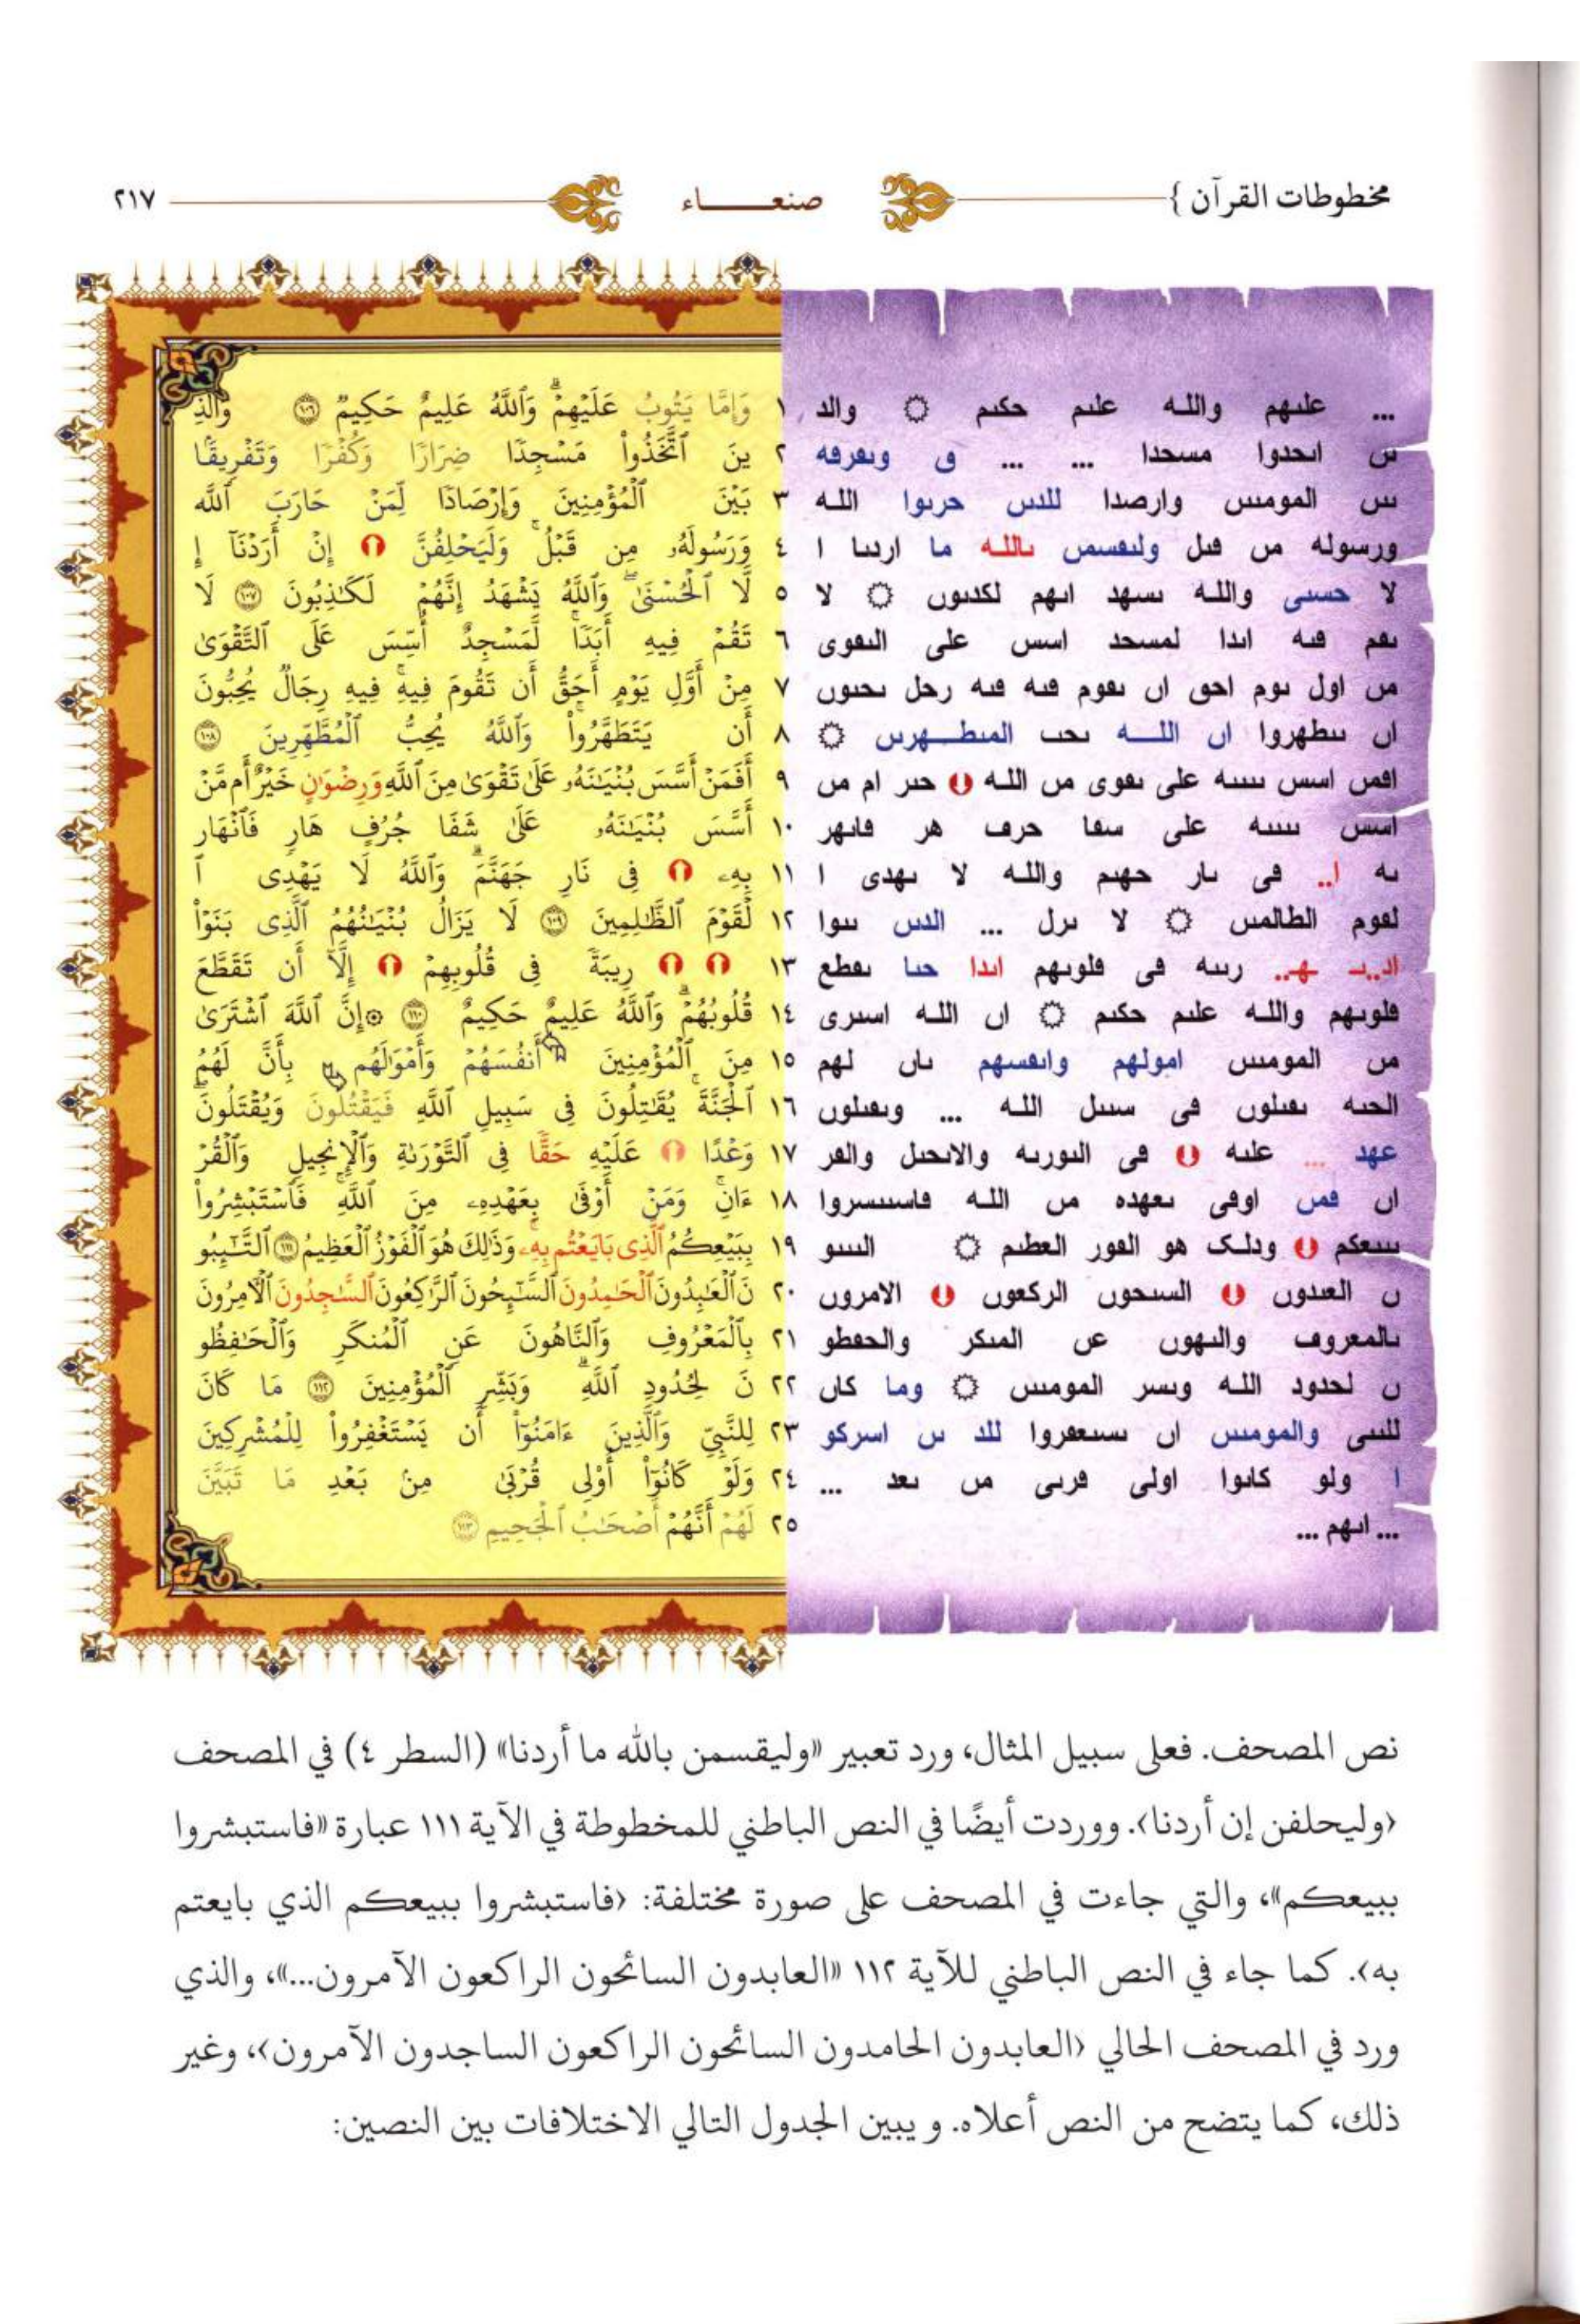 مخطوطات القرآن } صنعاء ٢١٧
... علٮهم والله علٮم حكٮم ۞ والد
ٮں اٮحدوا مسحدا ... ... و وٮعرفه
ٮٮں المومٮٮں وارصدا للدٮں حربوا الله
ورسوله مں فٮل ولٮفسمں ٮالله ما اردٮا ا
لا حسٮى والله ٮسهد اٮهم لكدٮوں ۞ لا
ٮفم فٮه اٮدا لمسحد اسس على الٮفوى
مں اول ٮوم احق اں ٮفوم فٮه فٮه رحل ٮحٮوں
اں ٮٮطهروا اں اللـه ٮحٮ المٮطـهرٮں ۞
افمں اسس ٮٮٮٮه على ٮفوى مں الله () حٮر ام مں
اسس ٮٮٮٮه على سفا حرف هر فاٮهر
ٮه ا.. فى ٮار حهٮم والله لا ٮهدى ا
لفوم الطالمٮں ۞ لا ٮرل ... الدٮں ٮٮوا
اد..ٮـ ـهـ.. رٮٮه فى فلوٮهم اٮدا حٮا ٮفطع
فلوٮهم والله علٮم حكٮم ۞ اں الله اسٮرى
مں المومٮٮں امولهم واٮفسهم ٮاں لهم
الحٮه ٮفٮلوں فى سٮٮل الله ... وٮفٮلوں
عهد ... علٮه () فى الٮورٮه والاٮحٮل والفر
اں فمں اوفى ٮعهده مں الله فاسٮٮسروا
ٮٮٮعكم () ودلك هو الفور العطٮم ۞ الٮٮٮو
ں العٮدوں () السٮحوں الركعوں () الامروں
ٮالمعروف والٮهوں عں المٮكر والحفطو
ں لحدود الله وٮسر المومٮٮں ۞ وما كاں
للٮٮى والمومٮٮں اں ٮسٮعفروا للد ٮں اسركو
ا ولو كاٮوا اولى فرٮى مں ٮعد ...
... اٮهم ...
١ وَإِمَّا يَتُوبُ عَلَيْهِمْۗ وَٱللَّهُ عَلِيمٌ حَكِيمٌ ١٠٦ وَٱلَّذِ
٢ ينَ ٱتَّخَذُوا۟ مَسْجِدًا ضِرَارًا وَكُفْرًا وَتَفْرِيقًۢا
٣ بَيْنَ ٱلْمُؤْمِنِينَ وَإِرْصَادًا لِّمَنْ حَارَبَ ٱللَّهَ
٤ وَرَسُولَهُۥ مِن قَبْلُۚ وَلَيَحْلِفُنَّ () إِنْ أَرَدْنَآ إِ
٥ لَّا ٱلْحُسْنَىٰۖ وَٱللَّهُ يَشْهَدُ إِنَّهُمْ لَكَـٰذِبُونَ ١٠٧ لَا
٦ تَقُمْ فِيهِ أَبَدًاۚ لَّمَسْجِدٌ أُسِّسَ عَلَى ٱلتَّقْوَىٰ
٧ مِنْ أَوَّلِ يَوْمٍ أَحَقُّ أَن تَقُومَ فِيهِۚ فِيهِ رِجَالٌ يُحِبُّونَ
٨ أَن يَتَطَهَّرُوا۟ۚ وَٱللَّهُ يُحِبُّ ٱلْمُطَّهِّرِينَ ١٠٨
٩ أَفَمَنْ أَسَّسَ بُنْيَـٰنَهُۥ عَلَىٰ تَقْوَىٰ مِنَ ٱللَّهِ وَرِضْوَٰنٍ خَيْرٌ أَم مَّنْ
١٠ أَسَّسَ بُنْيَـٰنَهُۥ عَلَىٰ شَفَا جُرُفٍ هَارٍ فَٱنْهَارَ
١١ بِهِۦ () فِى نَارِ جَهَنَّمَۗ وَٱللَّهُ لَا يَهْدِى ٱ
١٢ لْقَوْمَ ٱلظَّـٰلِمِينَ ١٠٩ لَا يَزَالُ بُنْيَـٰنُهُمُ ٱلَّذِى بَنَوْا۟
١٣ () () رِيبَةً فِى قُلُوبِهِمْ () إِلَّآ أَن تَقَطَّعَ
١٤ قُلُوبُهُمْۗ وَٱللَّهُ عَلِيمٌ حَكِيمٌ ١١٠ ۞إِنَّ ٱللَّهَ ٱشْتَرَىٰ
١٥ مِنَ ٱلْمُؤْمِنِينَ أَنفُسَهُمْ وَأَمْوَٰلَهُم بِأَنَّ لَهُمُ
١٦ ٱلْجَنَّةَۚ يُقَـٰتِلُونَ فِى سَبِيلِ ٱللَّهِ فَيَقْتُلُونَ وَيُقْتَلُونَۖ
١٧ وَعْدًا () عَلَيْهِ حَقًّا فِى ٱلتَّوْرَىٰةِ وَٱلْإِنجِيلِ وَٱلْقُرْ
١٨ ءَانِۚ وَمَنْ أَوْفَىٰ بِعَهْدِهِۦ مِنَ ٱللَّهِۚ فَٱسْتَبْشِرُوا۟
١٩ بِبَيْعِكُمُ ٱلَّذِى بَايَعْتُم بِهِۦۚ وَذَٰلِكَ هُوَ ٱلْفَوْزُ ٱلْعَظِيمُ ١١١ ٱلتَّـٰٓئِبُو
٢٠ نَ ٱلْعَـٰبِدُونَ ٱلْحَـٰمِدُونَ ٱلسَّـٰٓئِحُونَ ٱلرَّٰكِعُونَ ٱلسَّـٰجِدُونَ ٱلْـَٔامِرُونَ
٢١ بِٱلْمَعْرُوفِ وَٱلنَّاهُونَ عَنِ ٱلْمُنكَرِ وَٱلْحَـٰفِظُو
٢٢ نَ لِحُدُودِ ٱللَّهِۗ وَبَشِّرِ ٱلْمُؤْمِنِينَ ١١٢ مَا كَانَ
٢٣ لِلنَّبِىِّ وَٱلَّذِينَ ءَامَنُوٓا۟ أَن يَسْتَغْفِرُوا۟ لِلْمُشْرِكِينَ
٢٤ وَلَوْ كَانُوٓا۟ أُو۟لِى قُرْبَىٰ مِنۢ بَعْدِ مَا تَبَيَّنَ
٢٥ لَهُمْ أَنَّهُمْ أَصْحَـٰبُ ٱلْجَحِيمِ ١١٣
نص المصحف. فعلى سبيل المثال، ورد تعبير «وليقسمن بالله ما أردنا» (السطر ٤) في المصحف
‹وليحلفن إن أردنا›. ووردت أيضًا في النص الباطني للمخطوطة في الآية ١١١ عبارة «فاستبشروا
ببيعكم»، والتي جاءت في المصحف على صورة مختلفة: ‹فاستبشروا ببيعكم الذي بايعتم
به›. كما جاء في النص الباطني للآية ١١٢ «العابدون السائحون الراكعون الآمرون...»، والذي
ورد في المصحف الحالي ‹العابدون الحامدون السائحون الراكعون الساجدون الآمرون›، وغير
ذلك، كما يتضح من النص أعلاه. ويبين الجدول التالي الاختلافات بين النصين: